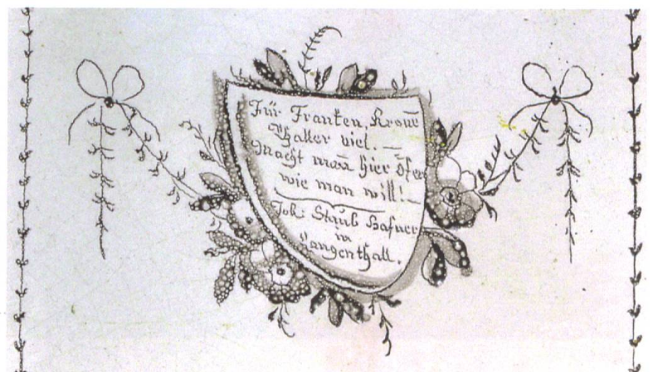 Für Franken, Kron̄e
Thaller viel. —
Macht man̄ hier Öfen
wie man will!
Joh: Staub Hafner
in
Langenthall.